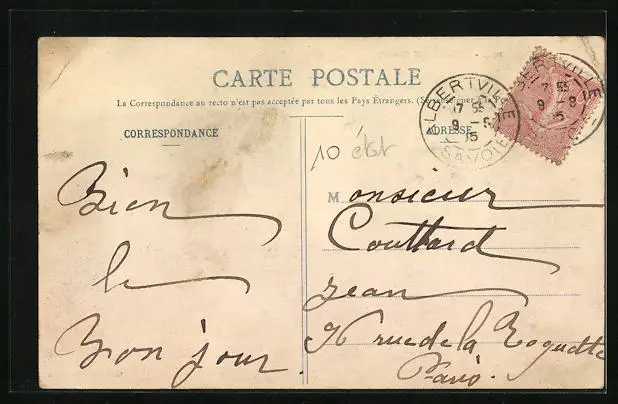 CARTE POSTALE
La Correspondance au recto n'est pas acceptée par tous les Pays Étrangers. (Se renseigner à la Po
CORRESPONDANCE
ADRESSE
ALBERTVILLE
17 55
9 - 9
05
SAVOIE
BERTVILLE
7 55
9 - 9
10 état
Bien
le
Bon jour.
Monsieur
Couttard
Jean
76 rue de la Roquette
Paris.